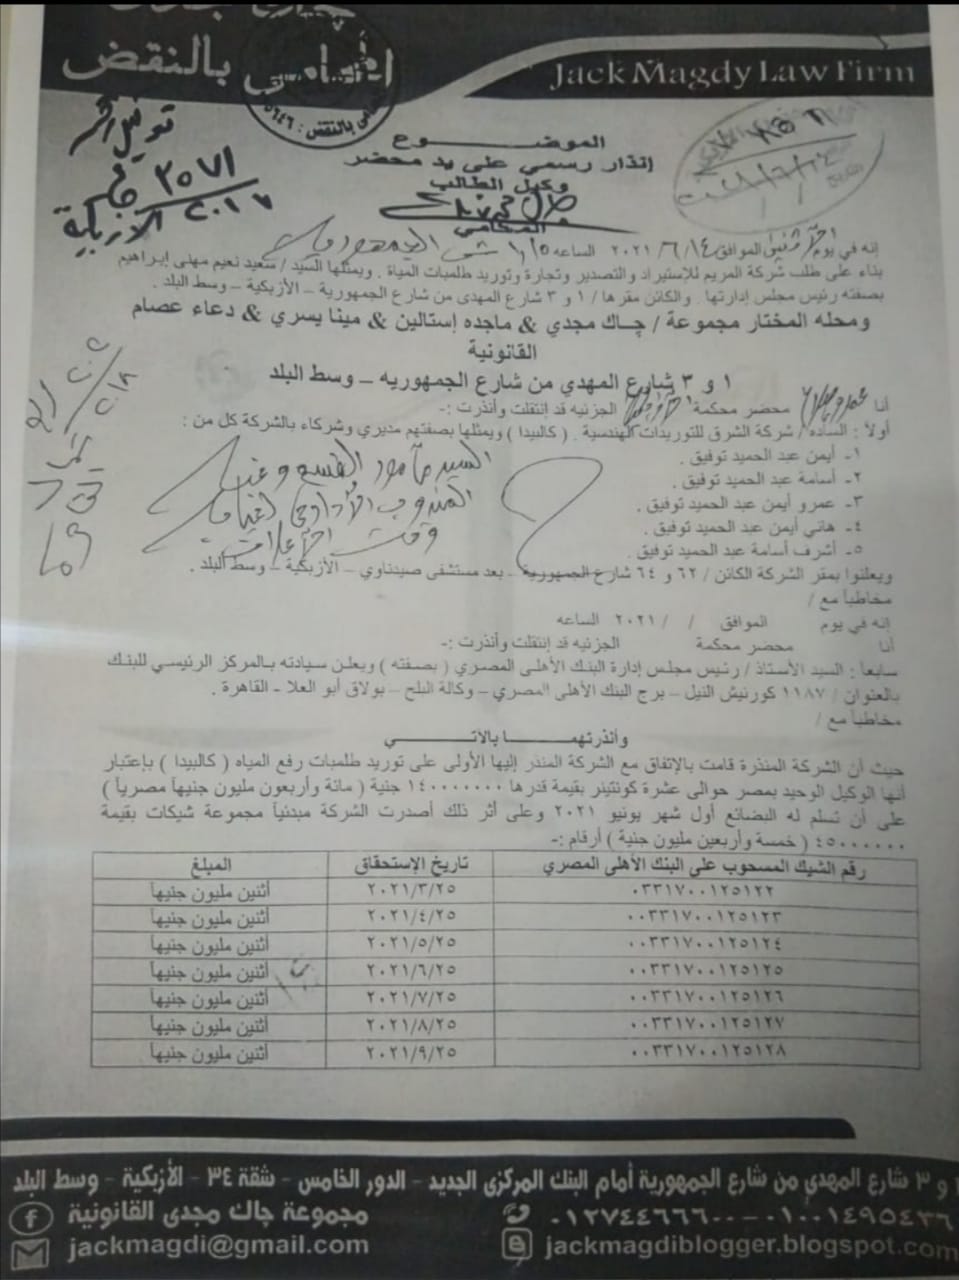 المحامى بالنقض
Jack Magdy Law Firm
الموضـــــــوع
إنذار رسمي على يد محضر
وكيل الطالب
المحامي
٣٥٧١
٢٠١٧
الازبكية
إنه في يوم الموافق ٢٠٢١/٦/١٤ الساعه
بناء على طلب شركة المريم للإستيراد والتصدير وتجارة وتوريد طلمبات المياة . ويمثلها السيد / سعيد نعيم مهنى إبراهيم
بصفته رئيس مجلس إدارتها . والكائن مقرها / ١ و ٣ شارع المهدى من شارع الجمهورية – الأزبكية – وسط البلد .
ومحله المختار مجموعة / چاك مجدي & ماجده إستالين & مينا يسري & دعاء عصام
القانونية
١ و ٣ شارع المهدي من شارع الجمهوريه – وسط البلد
أنا محضر محكمة الجزئيه قد إنتقلت وأنذرت :-
أولاً : الساده / شركة الشرق للتوريدات الهندسية . ( كالبيدا ) ويمثلها بصفتهم مديري وشركاء بالشركة كل من :
١- أيمن عبد الحميد توفيق .
٢- أسامة عبد الحميد توفيق .
٣- عمرو أيمن عبد الحميد توفيق .
٤- هاني أيمن عبد الحميد توفيق .
٥- أشرف أسامة عبد الحميد توفيق .
السيد مأمور القسم
ويعلنوا بمقر الشركة الكائن / ٦٢ و ٦٤ شارع الجمهورية – بعد مستشفى صيدناوي – الأزبكية – وسط البلد .
مخاطباً مع /
إنه في يوم الموافق / / ٢٠٢١ الساعه
أنا محضر محكمة الجزئيه قد إنتقلت وأنذرت :-
سابعاً : السيد الأستاذ / رئيس مجلس إدارة البنك الأهلى المصري ( بصفته ) ويعلن سيادته بالمركز الرئيسي للبنك
بالعنوان / ١١٨٧ كورنيش النيل – برج البنك الأهلى المصري – وكالة البلح – بولاق أبو العلا - القاهرة .
مخاطباً مع /
وأنذرتهمــــــا بالاتــــي
حيث أن الشركة المنذرة قامت بالإتفاق مع الشركة المنذر إليها الأولى على توريد طلمبات رفع المياه ( كالبيدا ) بإعتبار
أنها الوكيل الوحيد بمصر حوالى عشرة كونتينر بقيمة قدرها ١٤٠٠٠٠٠٠٠ جنية ( مائة وأربعون مليون جنيهاً مصرياً )
على أن تسلم له البضائع أول شهر يونيو ٢٠٢١ وعلى أثر ذلك أصدرت الشركة مبدئياً مجموعة شيكات بقيمة
٤٥٠٠٠٠٠٠ ( خمسة وأربعين مليون جنية ) أرقام :-
رقم الشيك المسحوب على البنك الأهلى المصري تاريخ الإستحقاق المبلغ
٠٣٣١٧٠٠١٢٥١٢٢ ٢٠٢١/٣/٢٥ أثنين مليون جنيهاً
٠٠٣٣١٧٠٠١٢٥١٢٣ ٢٠٢١/٤/٢٥ أثنين مليون جنيهاً
٠٠٣٣١٧٠٠١٢٥١٢٤ ٢٠٢١/٥/٢٥ أثنين مليون جنيهاً
٠٠٣٣١٧٠٠١٢٥١٢٥ ٢٠٢١/٦/٢٥ أثنين مليون جنيهاً
٠٠٣٣١٧٠٠١٢٥١٢٦ ٢٠٢١/٧/٢٥ أثنين مليون جنيهاً
٠٠٣٣١٧٠٠١٢٥١٢٧ ٢٠٢١/٨/٢٥ أثنين مليون جنيهاً
٠٠٣٣١٧٠٠١٢٥١٢٨ ٢٠٢١/٩/٢٥ أثنين مليون جنيهاً
١ و ٣ شارع المهدي من شارع الجمهورية أمام البنك المركزى الجديد - الدور الخامس - شقة ٣٤ - الأزبكية - وسط البلد
مجموعة چاك مجدى القانونية
٠١٢٧٤٤٦٦٦٠٠ - ٠١٠٠١٤٩٥٤٣٦
jackmagdi@gmail.com
jackmagdiblogger.blogspot.com